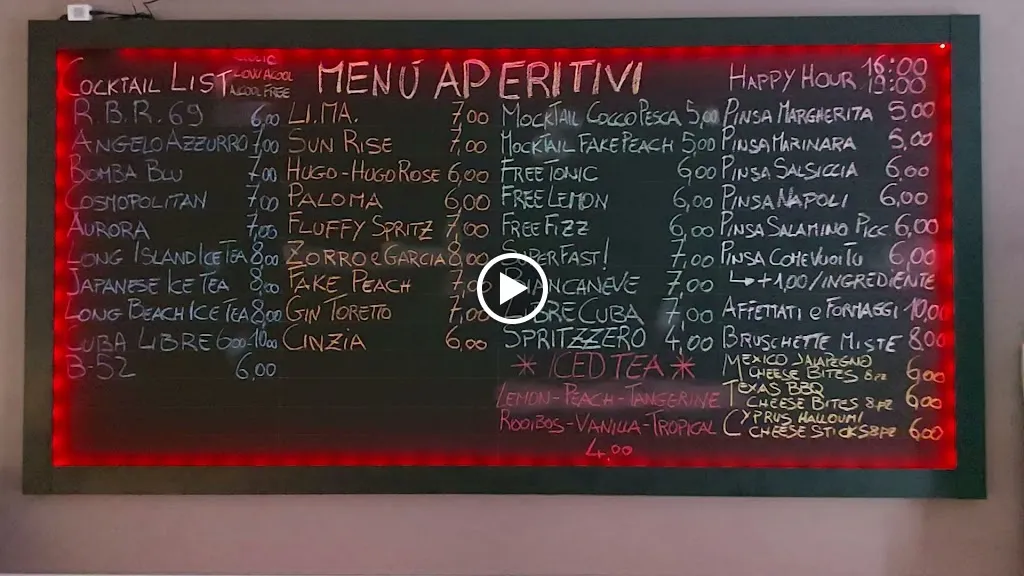 COCKTAIL LIST
LOW ALCOOL
ALCOOL FREE
MENÚ APERITIVI
HAPPY HOUR 16:00
19:00
R.B.R. 69 6,00
ANGELO AZZURRO 7,00
BOMBA BLU 7,00
COSMOPOLITAN 7,00
AURORA 7,00
LONG ISLAND ICE TEA 8,00
JAPANESE ICE TEA 8,00
LONG BEACH ICE TEA 8,00
CUBA LIBRE 6,00-10,00
B-52 6,00
LI.MA. 7,00
SUN RISE 7,00
HUGO-HUGO ROSE 6,00
PALOMA 6,00
FLUFFY SPRITZ 7,00
ZORRO e GARCIA 8,00
FAKE PEACH 7,00
GIN TORETTO 7,00
CINZIA 6,00
MOCKTAIL COCCO PESCA 5,00
MOCKTAIL FAKE PEACH 5,00
FREE TONIC 6,00
FREE LEMON 6,00
FREE FIZZ 6,00
SUPERFAST! 7,00
BIANCANEVE 7,00
LIBRE CUBA 7,00
SPRITZZERO 4,00
* ICED TEA *
LEMON-PEACH-TANGERINE
ROOIBOS-VANILLA-TROPICAL
4,00
PINSA MARGHERITA 5,00
PINSA MARINARA 5,00
PINSA SALSICCIA 6,00
PINSA NAPOLI 6,00
PINSA SALAMINO PICC 6,00
PINSA COME VUOI TU 6,00
↳ +1,00/INGREDIENTE
AFFETTATI e FORMAGGI 10,00
BRUSCHETTE MISTE 8,00
MEXICO JALAPEGNO
CHEESE BITES 8PZ 6,00
TEXAS BBQ
CHEESE BITES 8PZ 6,00
CYPRUS HALLOUMI
CHEESE STICKS 8PZ 6,00